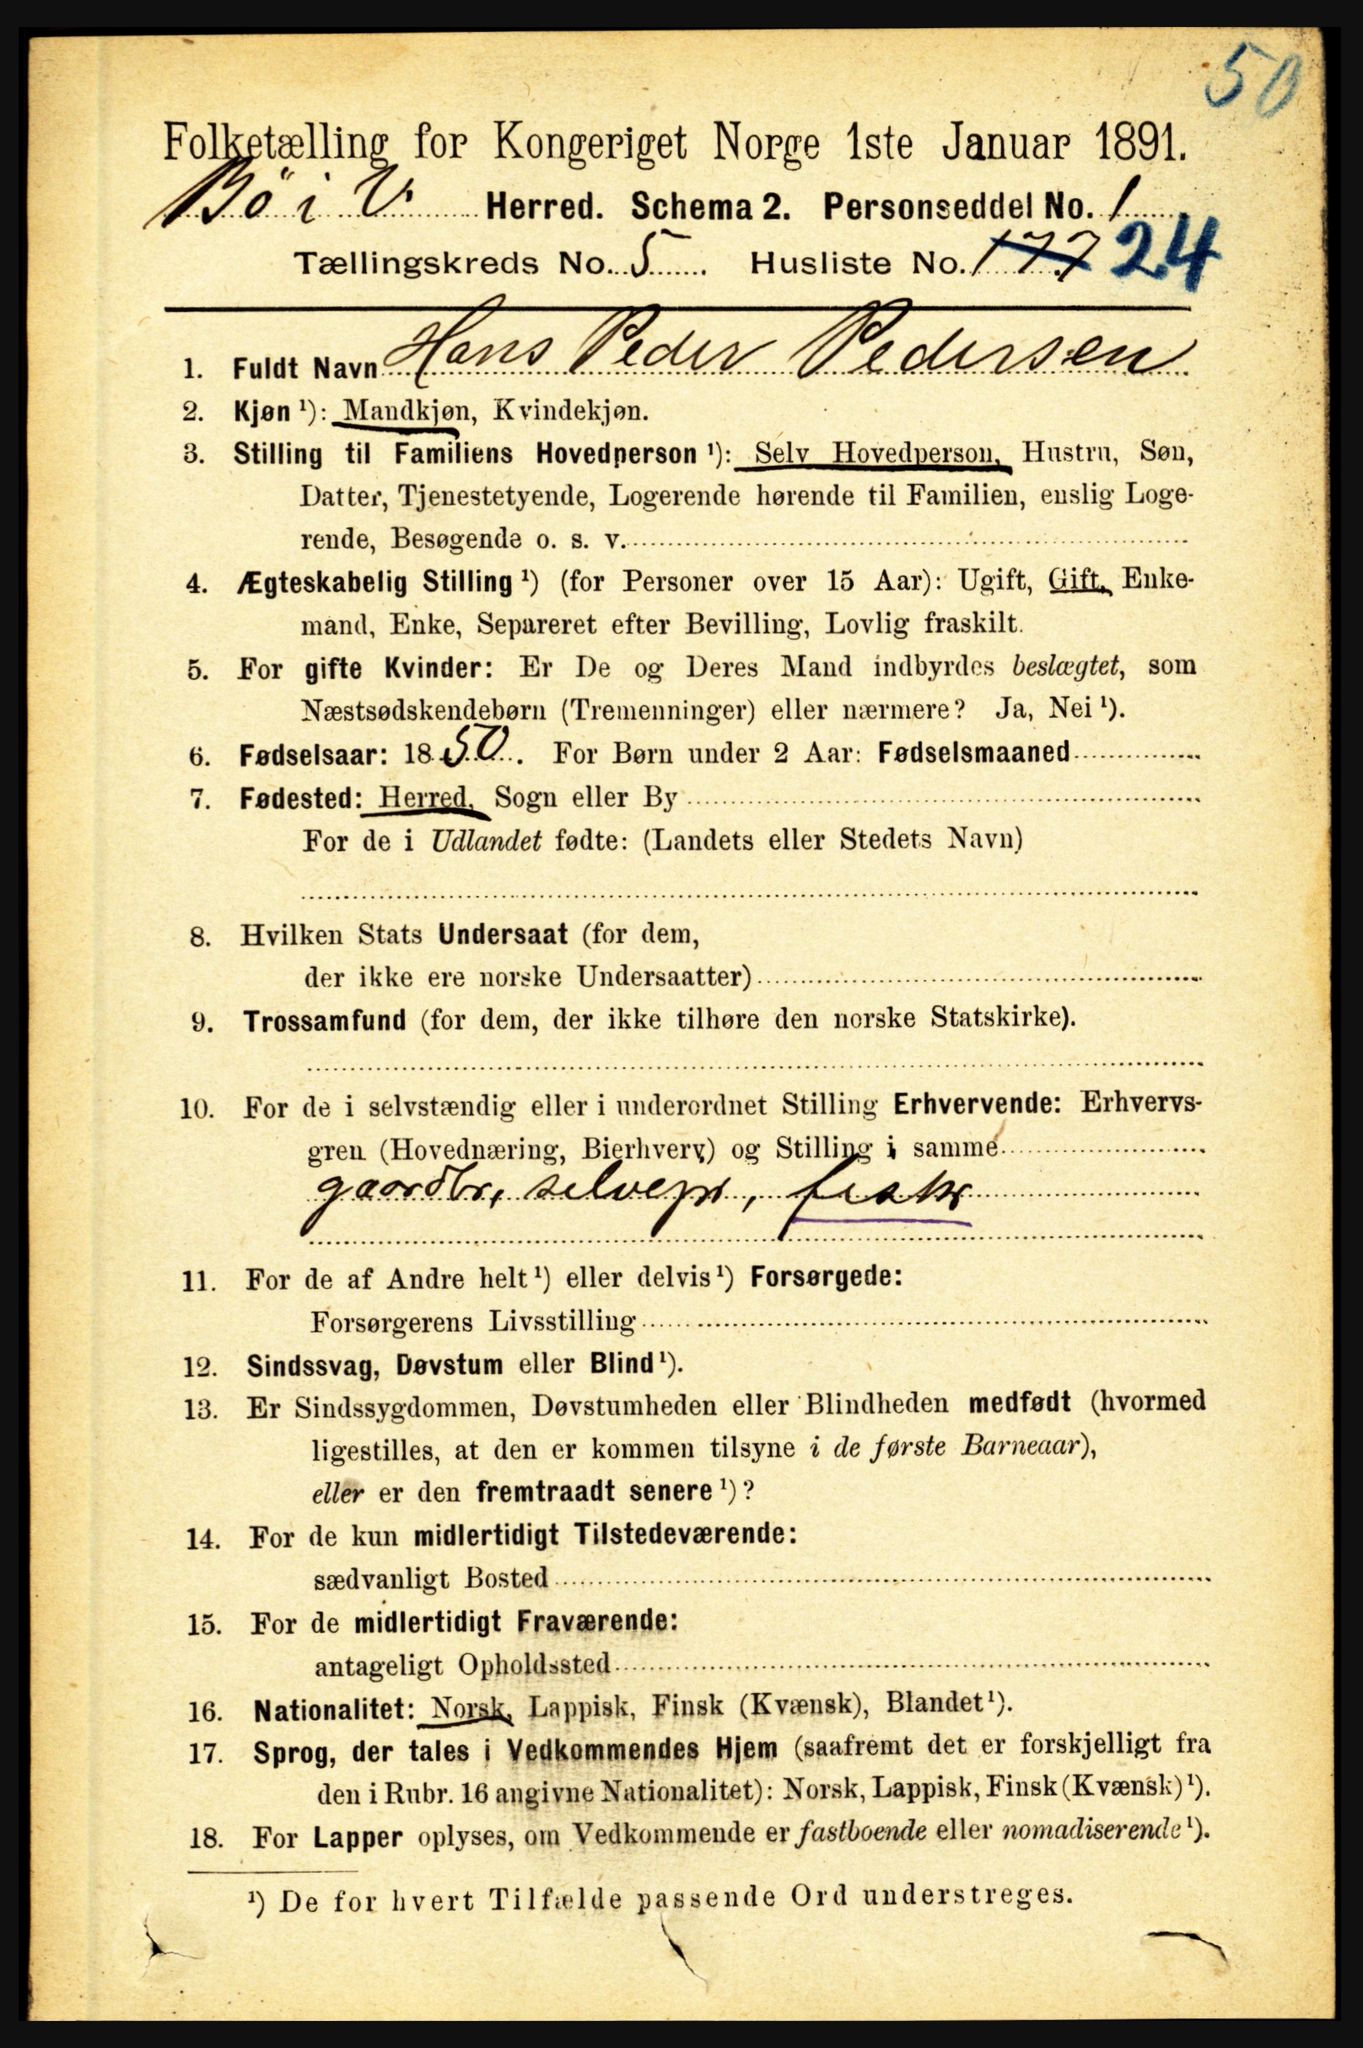 50
Folketælling for Kongeriget Norge 1ste Januar 1891.
Bö i V. Herred. Schema 2. Personseddel No. 1
Tællingskreds No. 5 Husliste No. 177 24
1. Fuldt Navn Hans Peder Pedersen
2. Kjøn ¹): Mandkjøn, Kvindekjøn.
3. Stilling til Familiens Hovedperson ¹): Selv Hovedperson, Hustru, Søn,
Datter, Tjenestetyende, Logerende hørende til Familien, enslig Loge-
rende, Besøgende o. s. v.
4. Ægteskabelig Stilling ¹) (for Personer over 15 Aar): Ugift, Gift, Enke-
mand, Enke, Separeret efter Bevilling, Lovlig fraskilt.
5. For gifte Kvinder: Er De og Deres Mand indbyrdes beslægtet, som
Næstsødskendebørn (Tremenninger) eller nærmere? Ja, Nei ¹).
6. Fødselsaar: 1850. For Børn under 2 Aar: Fødselsmaaned
7. Fødested: Herred, Sogn eller By
For de i Udlandet fødte: (Landets eller Stedets Navn)
8. Hvilken Stats Undersaat (for dem,
der ikke ere norske Undersaatter)
9. Trossamfund (for dem, der ikke tilhøre den norske Statskirke).
10. For de i selvstændig eller i underordnet Stilling Erhvervende: Erhvervs-
gren (Hovednæring, Bierhverv) og Stilling i samme
gaardbr, selvejer, fisker
11. For de af Andre helt ¹) eller delvis ¹) Forsørgede:
Forsørgerens Livsstilling
12. Sindssvag, Døvstum eller Blind ¹).
13. Er Sindssygdommen, Døvstumheden eller Blindheden medfødt (hvormed
ligestilles, at den er kommen tilsyne i de første Barneaar),
eller er den fremtraadt senere ¹)?
14. For de kun midlertidigt Tilstedeværende:
sædvanligt Bosted
15. For de midlertidigt Fraværende:
antageligt Opholdssted
16. Nationalitet: Norsk, Lappisk, Finsk (Kvænsk), Blandet ¹).
17. Sprog, der tales i Vedkommendes Hjem (saafremt det er forskjelligt fra
den i Rubr. 16 angivne Nationalitet): Norsk, Lappisk, Finsk (Kvænsk) ¹).
18. For Lapper oplyses, om Vedkommende er fastboende eller nomadiserende ¹).
¹) De for hvert Tilfælde passende Ord understreges.